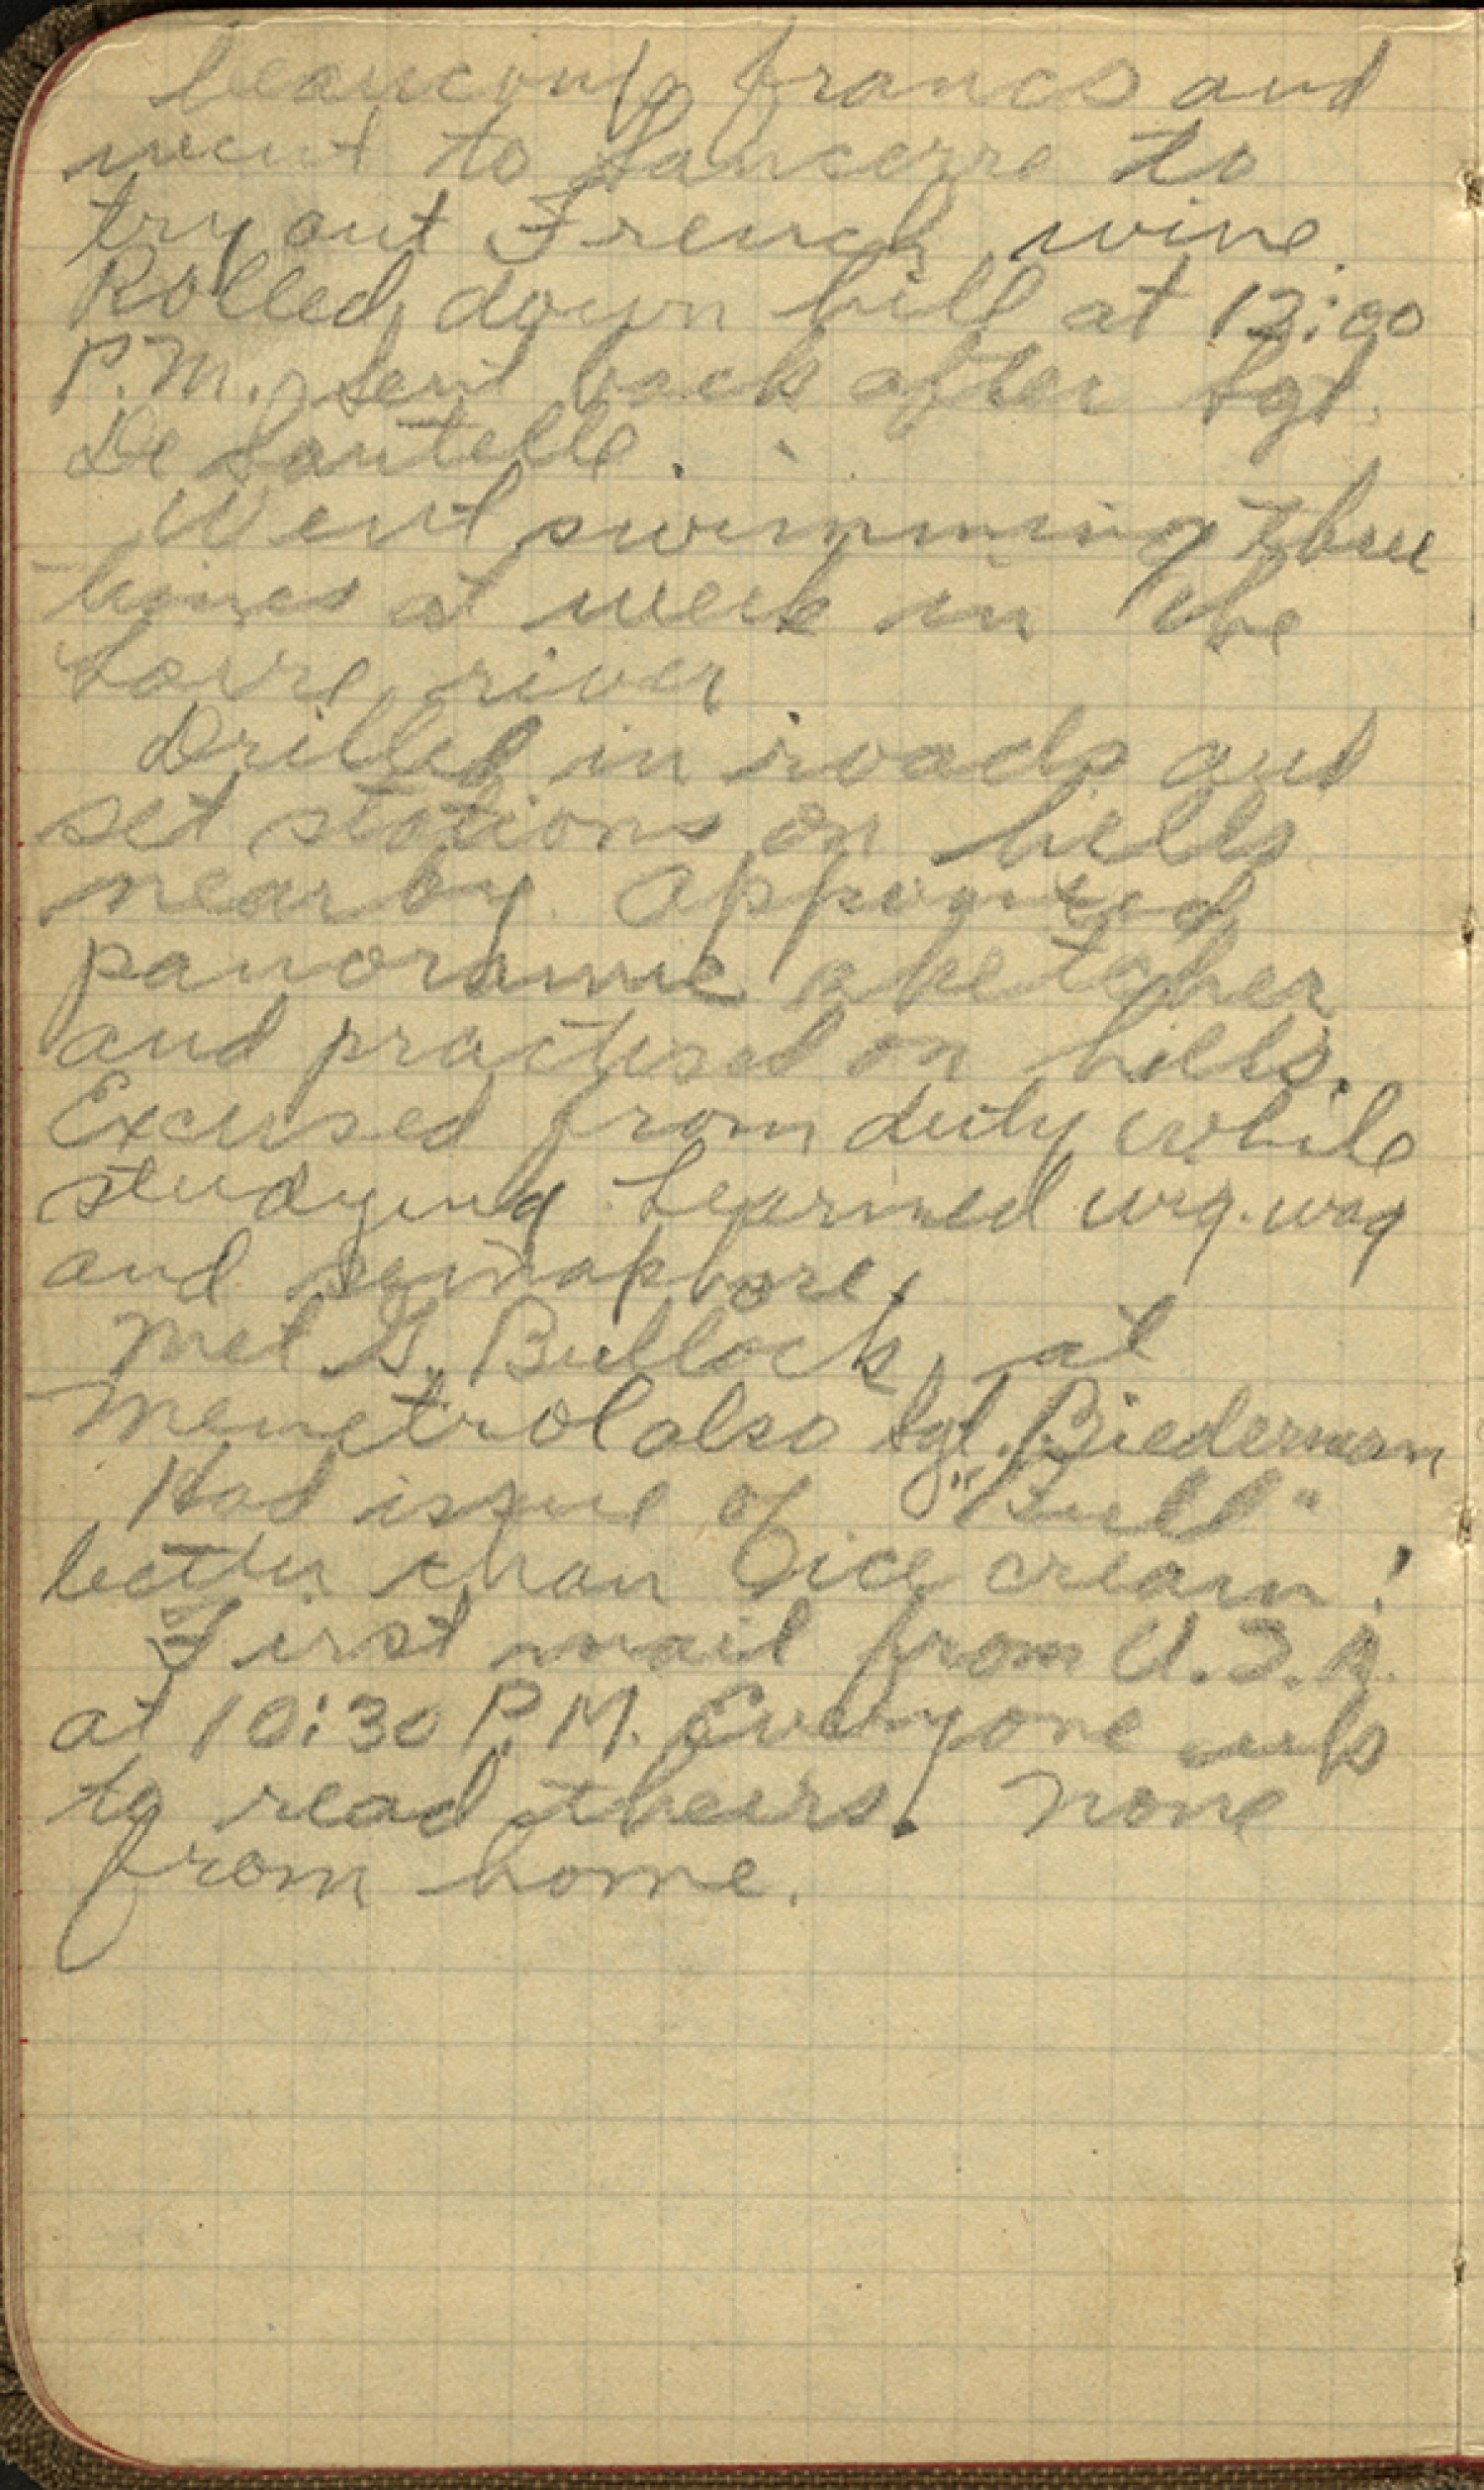 beaucoup francs and
went to Sancerre to
try out French wine.
Rolled down hill at 12:00
P.M., sent back after Sgt.
De Sautelle.
Went swimming three
times at week in the
Loire river
Drilled in roads and
set stations on hills
nearby. Appointed
panoramic sketcher
and practised on hills.
Excused from duty while
studying. Learned wig-wag
and semaphore.
Met G. Bullock, at
Menetrol also Sgt. Biederman
Had issue of "Bull"
better than ice cream!
First mail from U.S.A.
at 10:30 P.M. Everyone up
to read theirs. None
from home.